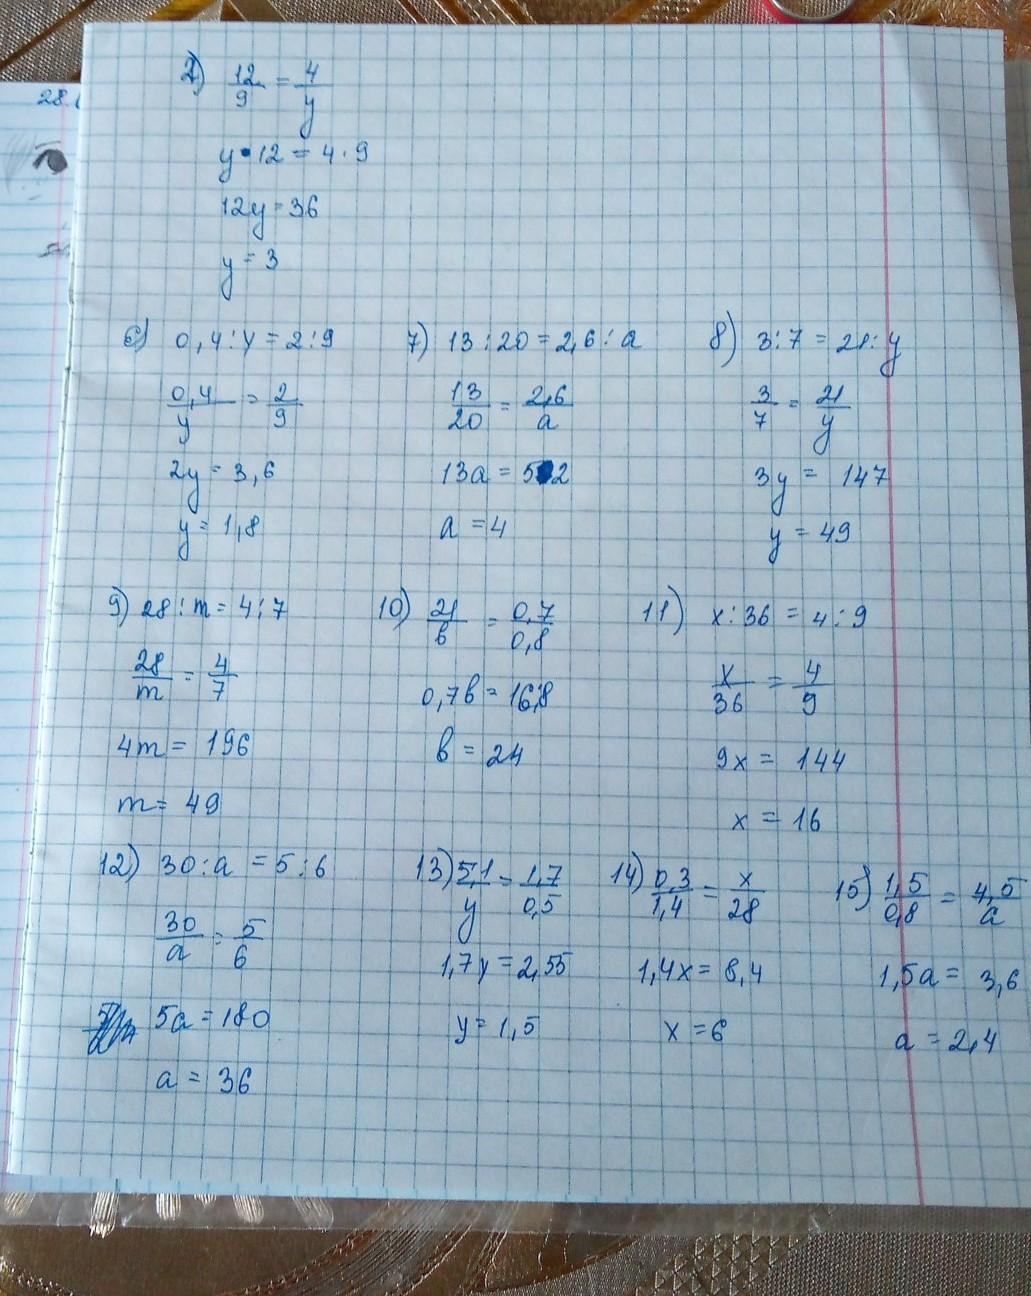 28.
2) 12/9 = 4/y
y·12 = 4·9
12y = 36
y = 3
6) 0,4:y = 2:9
0,4/y = 2/9
2y = 3,6
y = 1,8
7) 13:20 = 2,6:a
13/20 = 2,6/a
13a = 52
a = 4
8) 3:7 = 21:y
3/7 = 21/y
3y = 147
y = 49
9) 28:m = 4:7
28/m = 4/7
4m = 196
m = 49
10) 21/в = 0,7/0,8
0,7в = 16,8
в = 24
11) x:36 = 4:9
x/36 = 4/9
9x = 144
x = 16
12) 30:a = 5:6
30/a = 5/6
5a = 180
a = 36
13) 5,1/y = 1,7/0,5
1,7y = 2,55
y = 1,5
14) 0,3/1,4 = x/28
1,4x = 8,4
x = 6
15) 1,5/0,8 = 4,5/a
1,5a = 3,6
a = 2,4